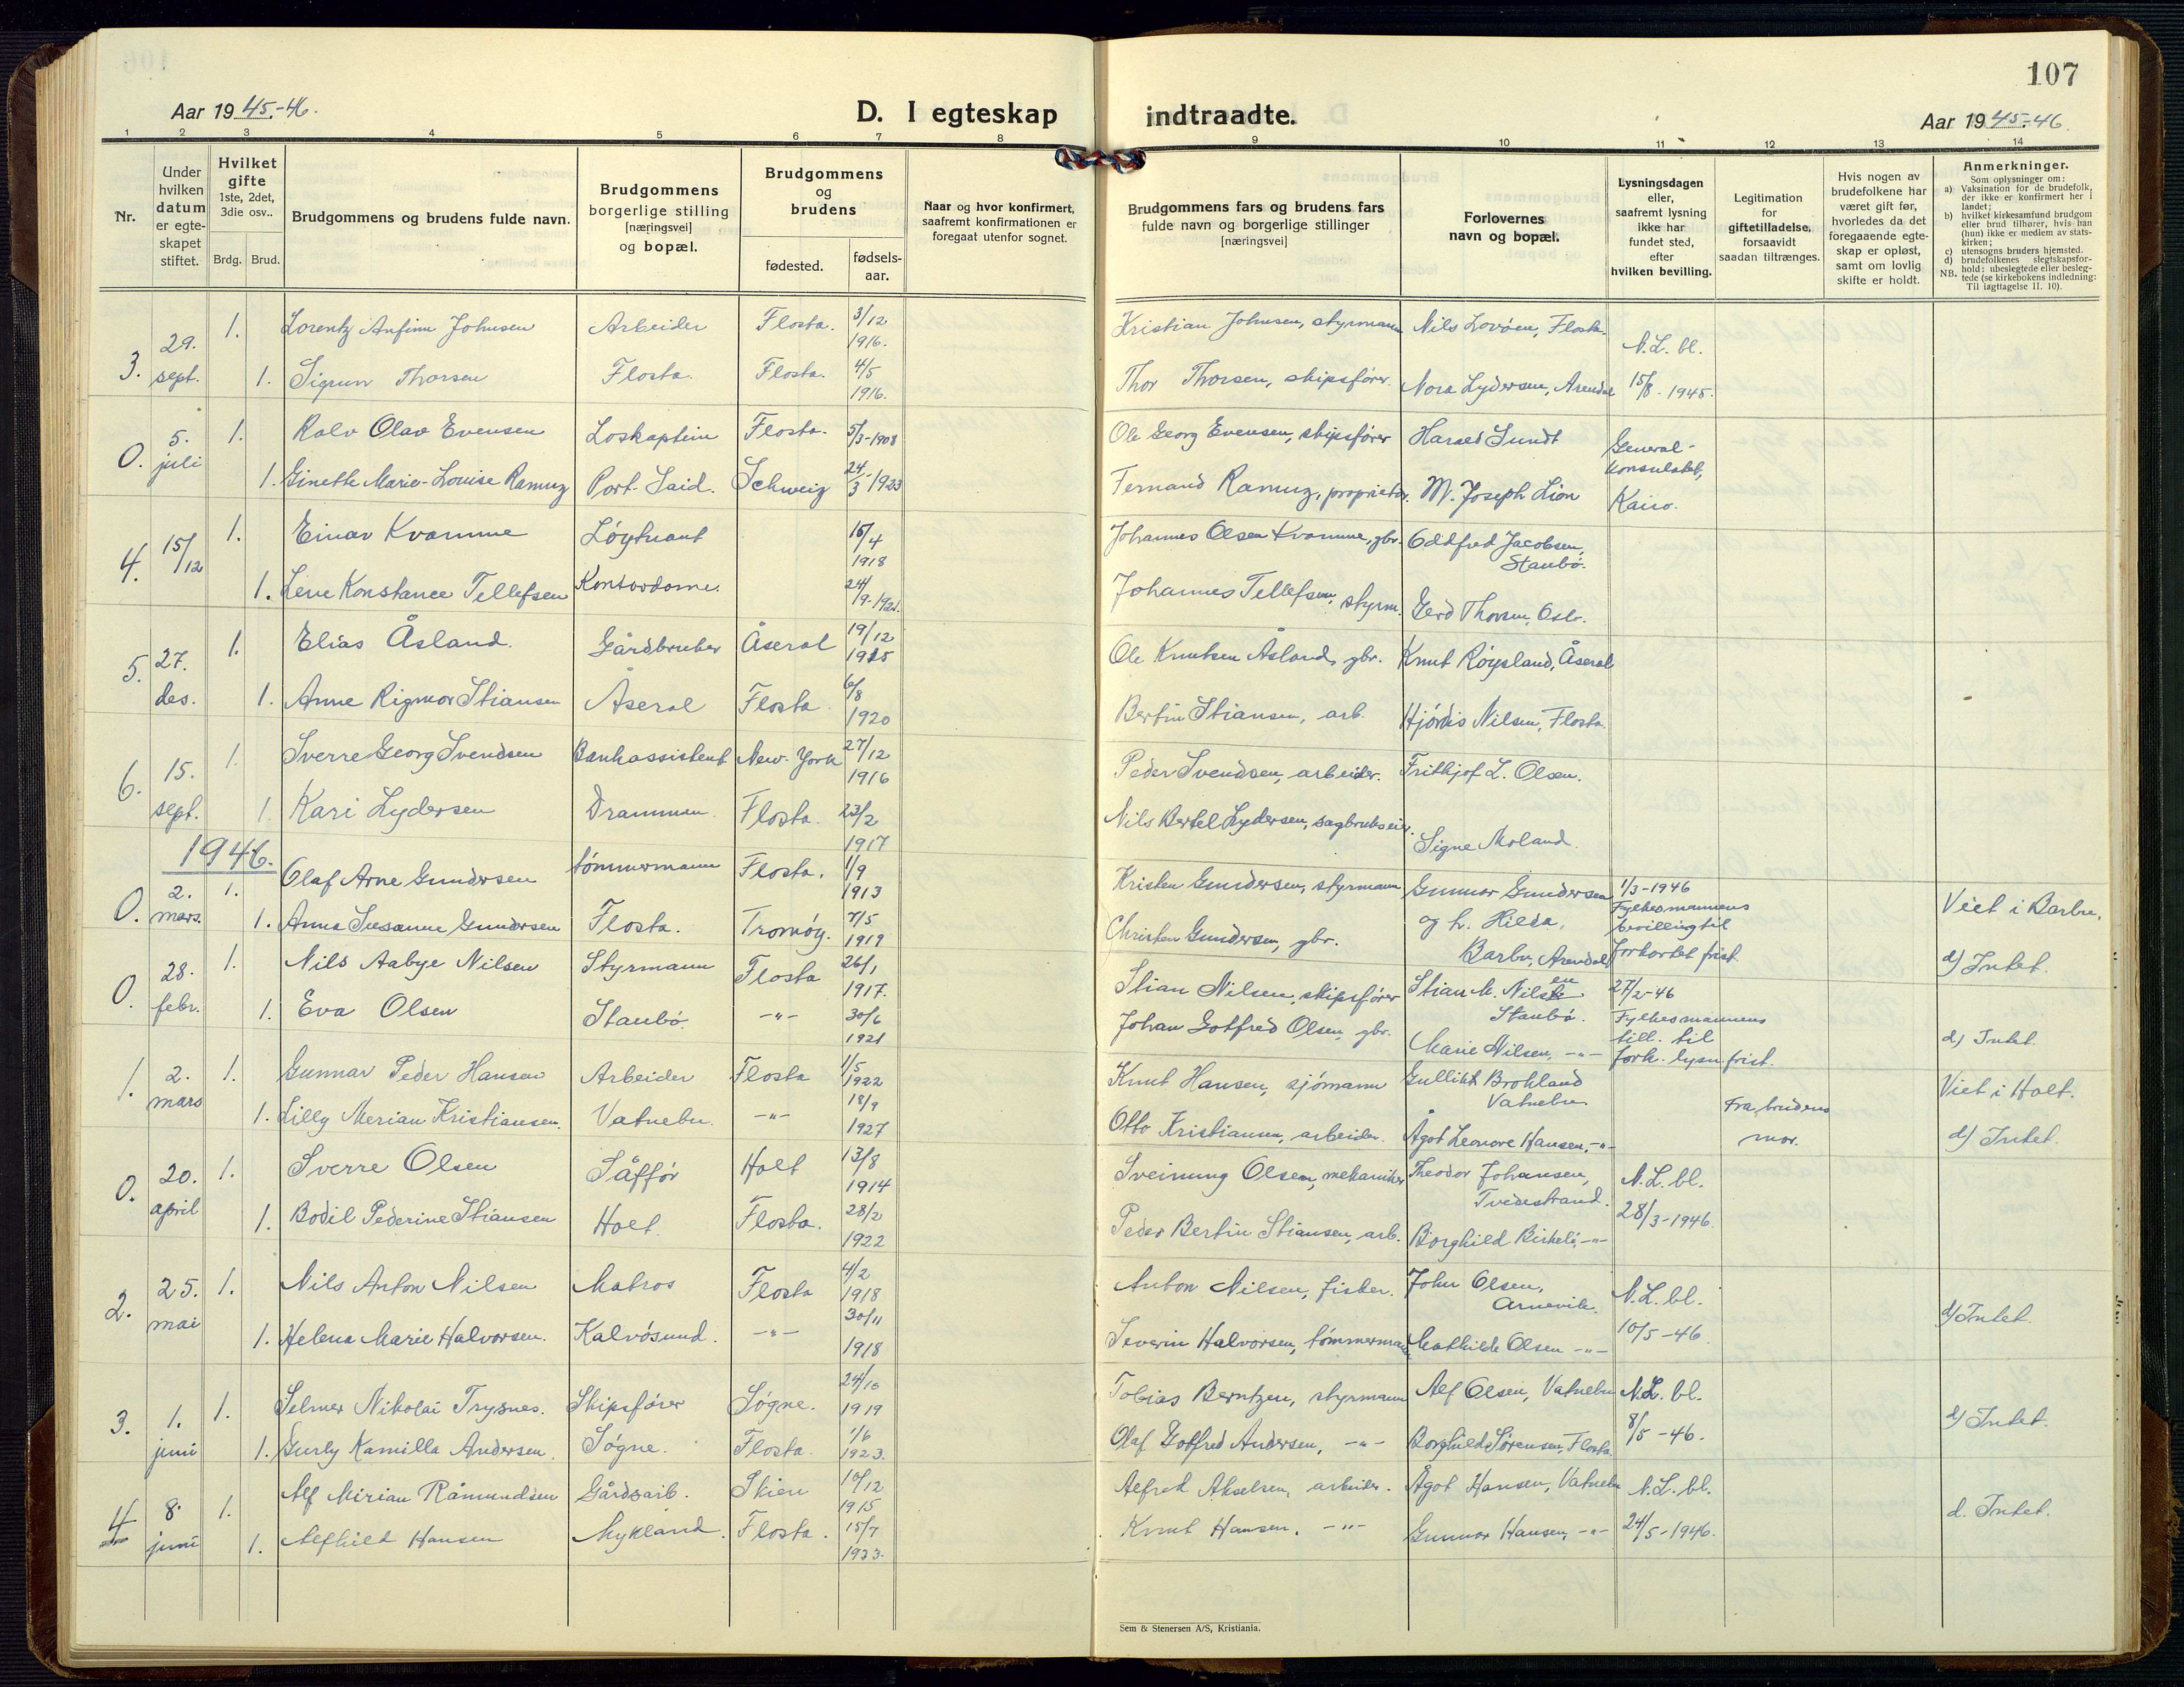 107
Aar 1945-46.
D. I egteskap indtraadte.
Aar 1945-46.
1 2 3 4 5 6 7 8 9 10 11 12 13 14
Nr.
Under hvilken datum er egteskapet stiftet.
Hvilket gifte 1ste, 2det, 3die osv..
Brdg. Brud.
Brudgommens og brudens fulde navn.
Brudgommens borgerlige stilling [næringsvei] og bopæl.
Brudgommens og brudens
fødested.
fødsels-aar.
Naar og hvor konfirmert, saafremt konfirmationen er foregaat utenfor sognet.
Brudgommens fars og brudens fars fulde navn og borgerlige stillinger [næringsvei]
Forlovernes navn og bopæl.
Lysningsdagen eller, saafremt lysning ikke har fundet sted, efter hvilken bevilling.
Legitimation for giftetilladelse, forsaavidt saadan tiltrænges.
Hvis nogen av brudefolkene har været gift før, hvorledes da det foregaaende egteskap er opløst, samt om lovlig skifte er holdt.
Anmerkninger.
Som oplysninger om:
a) Vaksination for de brudefolk, der ikke er konfirmert her i landet;
b) hvilket kirkesamfund brudgom eller brud tilhører, hvis han (hun) ikke er medlem av statskirken;
c) utensogns bruders hjemsted.
d) brudefolkenes slegtskapsforhold: ubeslegtede eller beslegtede (se kirkebokens indledning: Til iagttagelse II. 10).
NB.
3. 29. sept. 1. Lorentz Anfinn Johnsen Arbeider Flosta. 3/12 1916. Kristian Johnsen, styrmann Nils Lovøen, Flosta. N.L. bl.
1. Sigrun Thorsen Flosta. Flosta. 4/5 1916. Thor Thorsen, skipsfører. Nora Lydersen, Arendal 15/8-1945.
0. 5. juli 1. Ralv Olav Evensen Loskaptein Flosta. 5/3-1908 Ole Georg Evensen, skipsfører Harald Lundt General-
1. Ginette Marie-Louise Ramuz Port-Said. Schweiz 24/3 1923 Fernand Ramuz, proprietær. M. Joseph Lion konsulatet, Kairo.
4. 15/12 1. Einar Kvamme Løytnant 15/4 1918 Johannes Olsen Kvamme, gbr. Oddfred Jacobsen, Staubø.
1. Lene Konstance Tellefsen Kontordame. 24/9-1921. Johannes Tellefsen, styrm. Gerd Thorsen, Oslo.
5. 27. des. 1. Elias Åsland. Gårdbruker Åseral 19/12 1915 Ole Knutsen Åsland, gbr. Knut Røysland, Åseral
1. Anne Rigmor Stiansen Åseral Flosta. 6/8 1920 Bertin Stiansen, arb. Hjørdis Nilsen, Flosta.
6. 15. sept. 1. Sverre Georg Svendsen Bankassistent New-York 27/12 1916 Peder Svendsen, arbeider. Frithjof L. Olsen.
1. Kari Lydersen Drammen. Flosta. 23/2 1917 Nils Bertel Lydersen, sagbrukseier. Signe Moland.
1946.
0. 2. mars. 1. Olaf Arne Gundersen tømmermann Flosta. 1/9 1913 Kristen Gundersen, styrmann Gunnar Gundersen 1/3-1946 Viet i Barbu.
1. Anna Susanne Gundersen Flosta. Tromøy. 7/5 1919 Christen Gundersen, gbr. og fr. Hilda, Barbu, Arendal Fylkesmannens bevilling til forkortet frist. d) Intet.
0. 28. febr. 1. Nils Aabye Nilsen Styrmann Flosta 26/1 1917. Stian Nilsen, skipsfører Stian M. Nilsen Staubø. 27/2-46
1. Eva Olsen Staubø. -"- 30/6 1921 Johan Gotfred Olsen, gbr. Marie Nilsen, -"- Fylkesmannens till. til fork. lysn. frist. d) Intet.
1. 2. mars 1. Gunnar Peder Hansen Arbeider Flosta 1/5 1922 Knut Hansen, sjømann Gullikt Brokland Vatnebu. Viet i Holt.
1. Lilly Merian Kristiansen. Vatnebu. -"- 18/9 1927 Otto Kristiansen, arbeider. Ågot Leonore Hansen, -"- Fra brudens mor. d) Intet.
0. 20. april 1. Sverre Olsen Såffør Holt 13/8 1914 Sveinung Olsen, mekaniker Theodor Johansen, Tvedestrand. N.L. bl.
1. Bodil Pederine Stiansen Holt. Flosta. 28/2 1922 Peder Bertin Stiansen, arb. Borghild Birkeli, -"- 28/3-1946.
2. 25. mai 1. Nils Anton Nilsen Matros Flosta 4/2 1918 Anton Nilsen, fisker. John Olsen, Arnevik. N.L. bl.
1. Helena Marie Halvorsen. Kalvøsund. -"- 30/11 1918 Severin Halvorsen, tømmermann Mathilde Olsen -"- 10/5-46. d) Intet.
3. 1. juni 1. Selmer Nikolai Trysnes. Skipsfører Søgne. 24/10 1919 Tobias Berntzen, styrmann Alf Olsen, Vatnebu N.L. bl.
1. Gurly Kamilla Andersen. Søgne. Flosta. 1/6 1923. Olaf Gotfred Andersen, -"- Borghild Sørensen, Flosta. 8/5-46. d) Intet.
4 8. juni 1. Alf Mirian Råmundsen Gårdsarb. Skien 10/12 1915 Alfred Akselsen, arbeider. Ågot Hansen, Vatnebu N.L. bl.
1. Alfhild Hansen Mykland. Flosta. 15/7 1923. Knut Hansen. -"- Gunnar Hansen, -"- 24/5-1946. d. Intet.
Sem & Stenersen A/S, Kristiania.